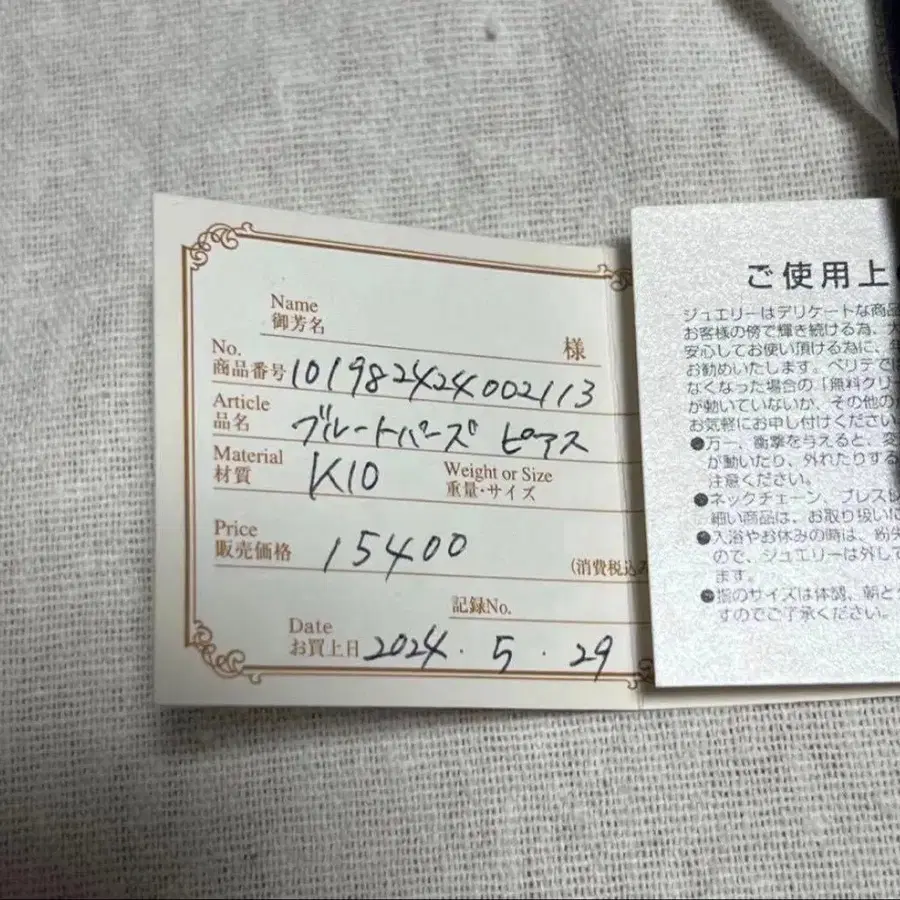 Name
御芳名
様
No.
商品番号 101982424002113
Article
品名 ブルートパーズ ピアス
Material
材質 K10
Weight or Size
重量・サイズ
Price
販売価格 15400
(消費税込み
記録No.
Date
お買上日 2024.5.29
ご使用上
ジュエリーはデリケートな商品
お客様の傍で輝き続ける為、
安心してお使い頂ける為に、
お勧めいたします。ベリテでは
なくなった場合の「無料クリー
が動いていないか、その他の
お気軽にお申し付けください
●万一、衝撃を与えると、変
が動いたり、外れたりする
注意ください。
●ネックチェーン、ブレスレ
細い商品は、お取り扱いに
●入浴やお休みの時は、紛失
ので、ジュエリーは外して
ます。
●指のサイズは体調、朝と
すのでご了承ください。